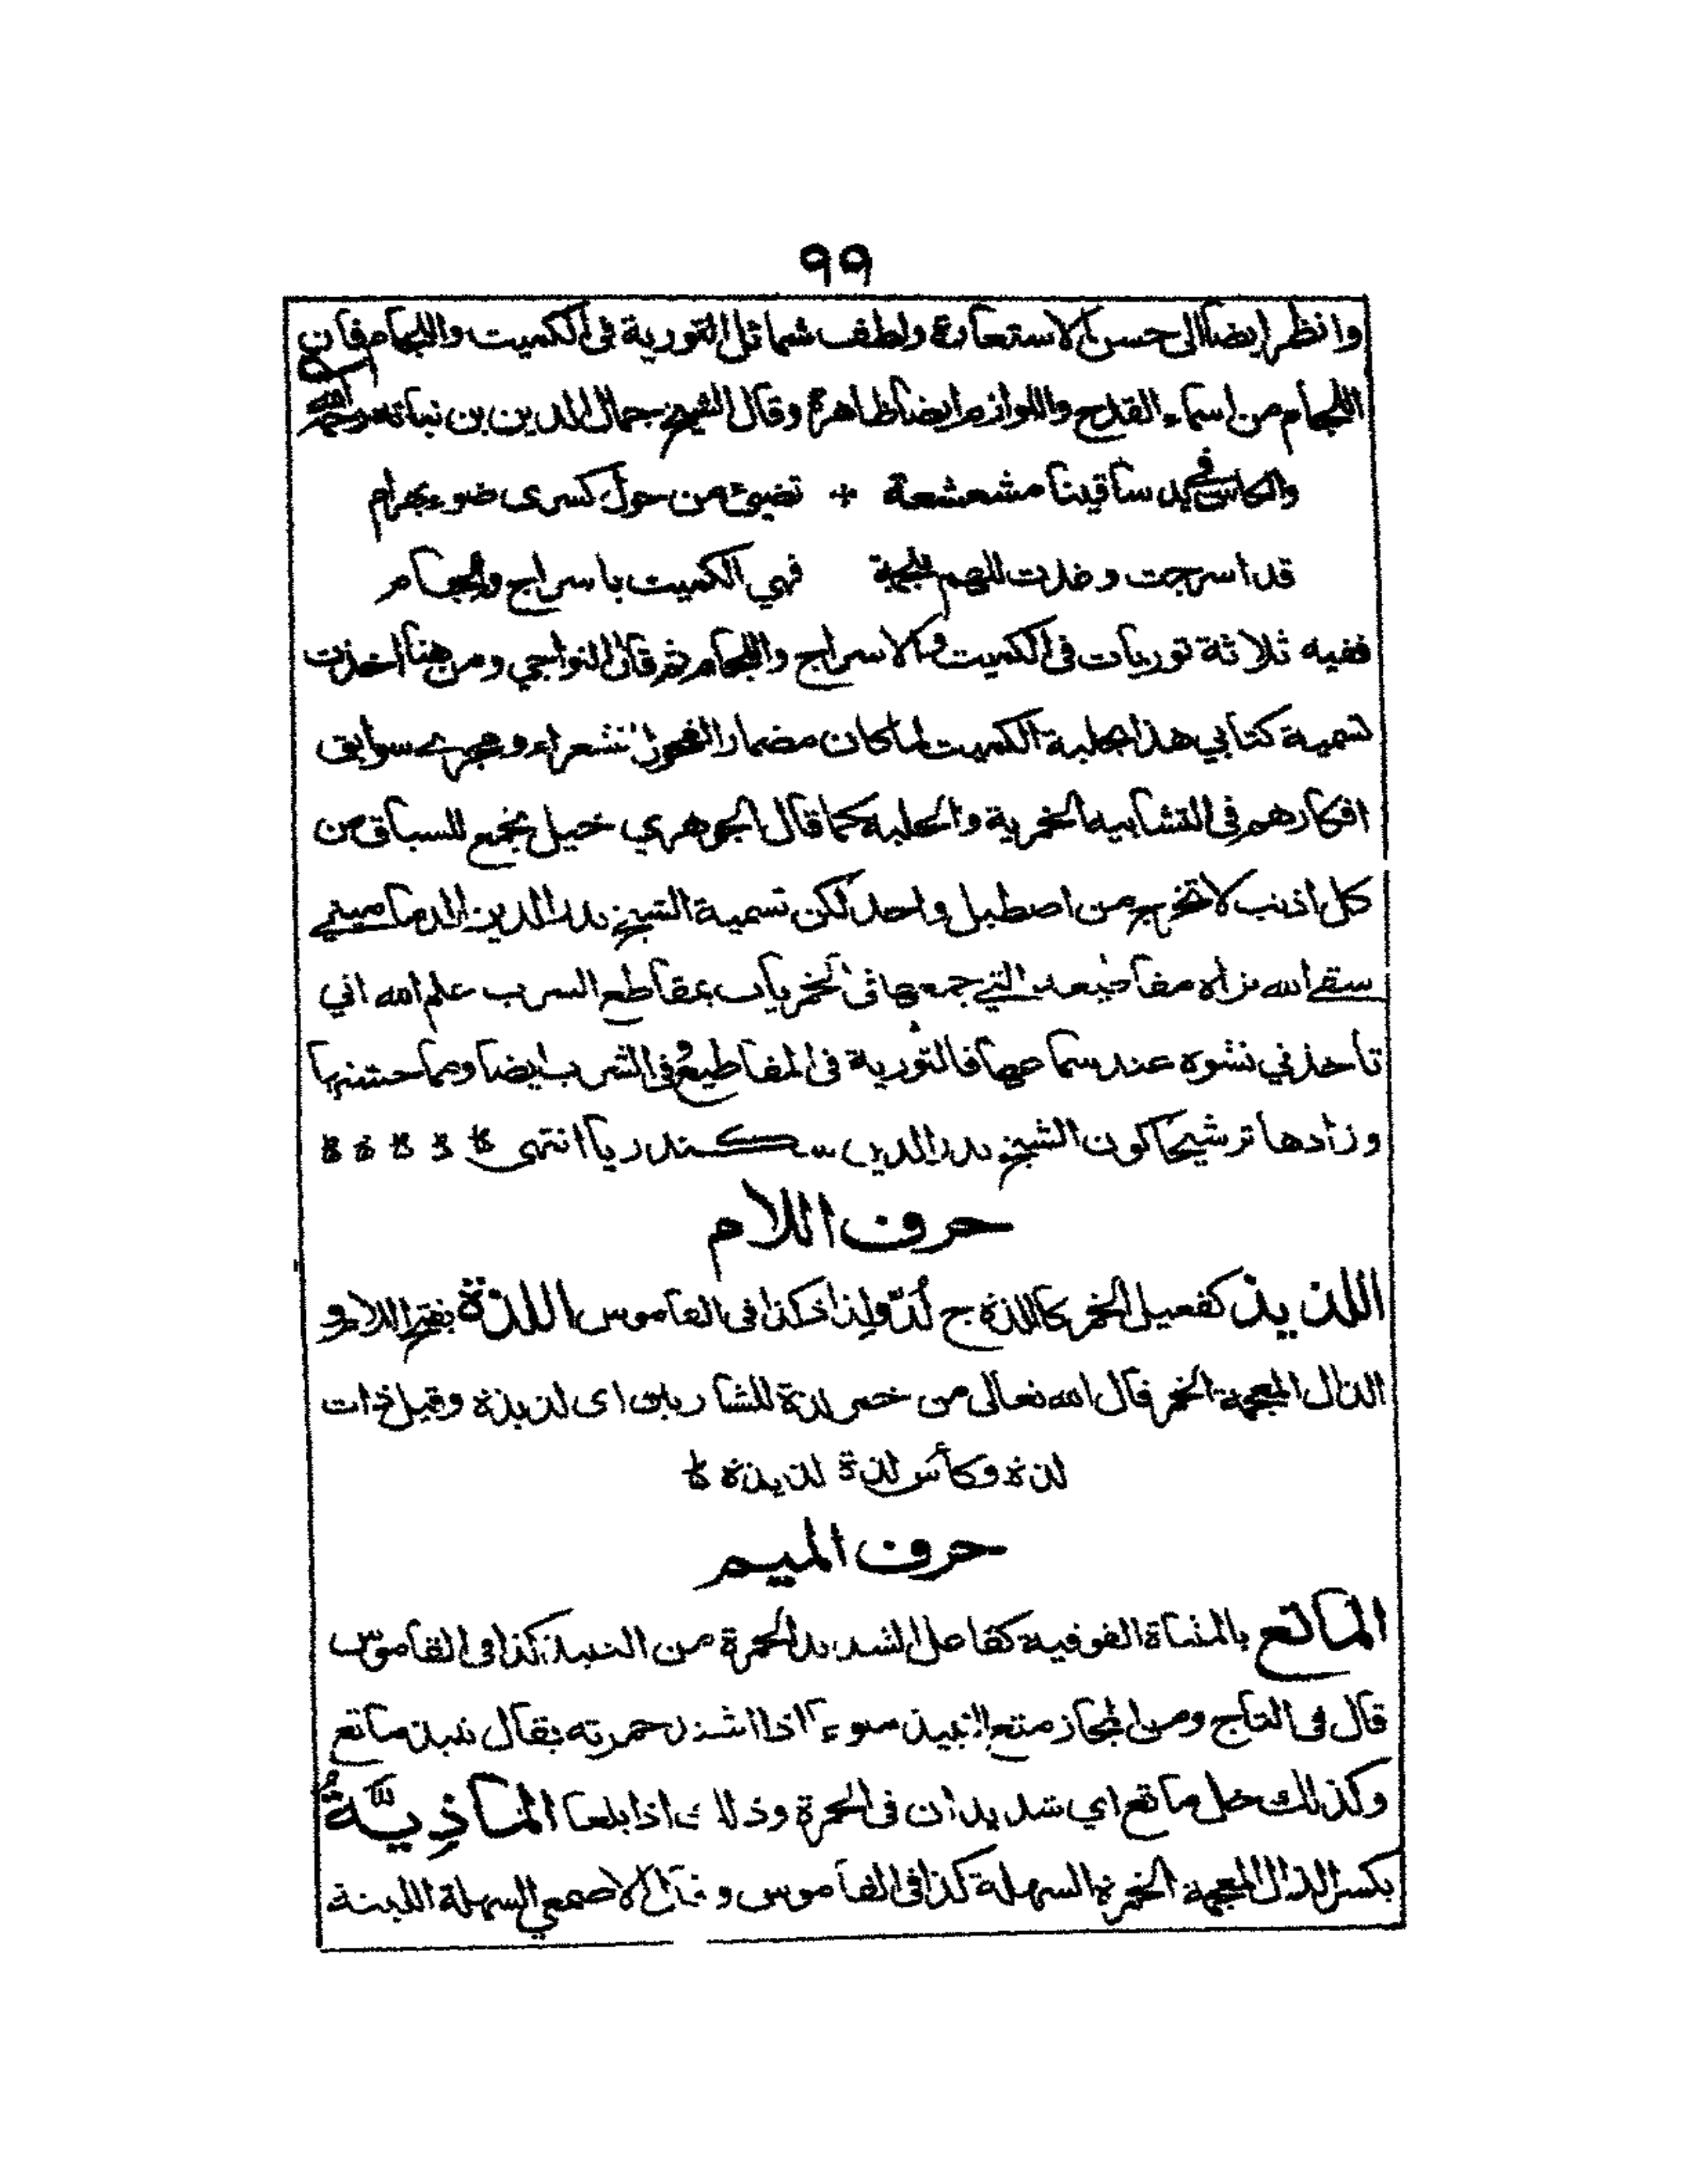 ٩٩
وانظر ايضا الى حسن الاستعارة ولطف شمائل التورية فى الكميت واللجام فان
اللجام من اسماء القدح واللوازم ايضا ظاهرة وقال الشيخ جمال الدين بن نباتة رحمه الله
والكاس في يد ساقينا مشعشعة + تضيئ من حول كسرى ضوء بهرام
قد اسرجت وغدت للهم ملجمة فهي الكميت باسراج والجام
ففيه ثلاثة توريات فى الكميت والاسراج واللجام ثم قال النواجي ومن هنا اخذت
تسمية كتابي هذا بحلبة الكميت لما كان مضمار الفحول الشعراء ومجرى سوابق
افكارهم فى التشابيه الخمرية والحلبة كما قال الجوهري خيل تجمع للسباق من
كل اذنب لا تخرج من اصطبل واحد لكن تسمية الشيخ بدر الدين الدماميني
سقى الله ثراه مقاطيعه التي جمعها فى الخمريات بمقاطع السرب علم الله اني
تأخذني نشوه عند سماعها فالتورية فى المقاطيع وفى الشرب ايضا ومما حسنها
وزادها ترشيحا كون الشيخ بدر الدين سكندريا انتهى
حرف اللام
اللذيذ كفعيل الخمر كاللذة ج لُذّ ولذاذ كذا فى القاموس اللذة بفتح اللام و
الذال المعجمة الخمر قال الله تعالى من خمر لذة للشاربين اى لذيذة وقيل ذات
لذة وكأس لذة لذيذة
حرف الميم
الماتع بالمثناة الفوقية كفاعل الشديد الحمرة من النبيذ كذا فى القاموس
قال فى التاج ومن المجاز متع النبيذ متوعا اذا اشتد حمرته يقال نبيذ ماتع
وكذلك خل ماتع اي شديدان فى الحمرة وذلك اذا بلغا الماذِيَّةُ
بكسر الذال المعجمة الخمرة السهلة كذا فى القاموس وقال الاصمعي السهلة اللينة